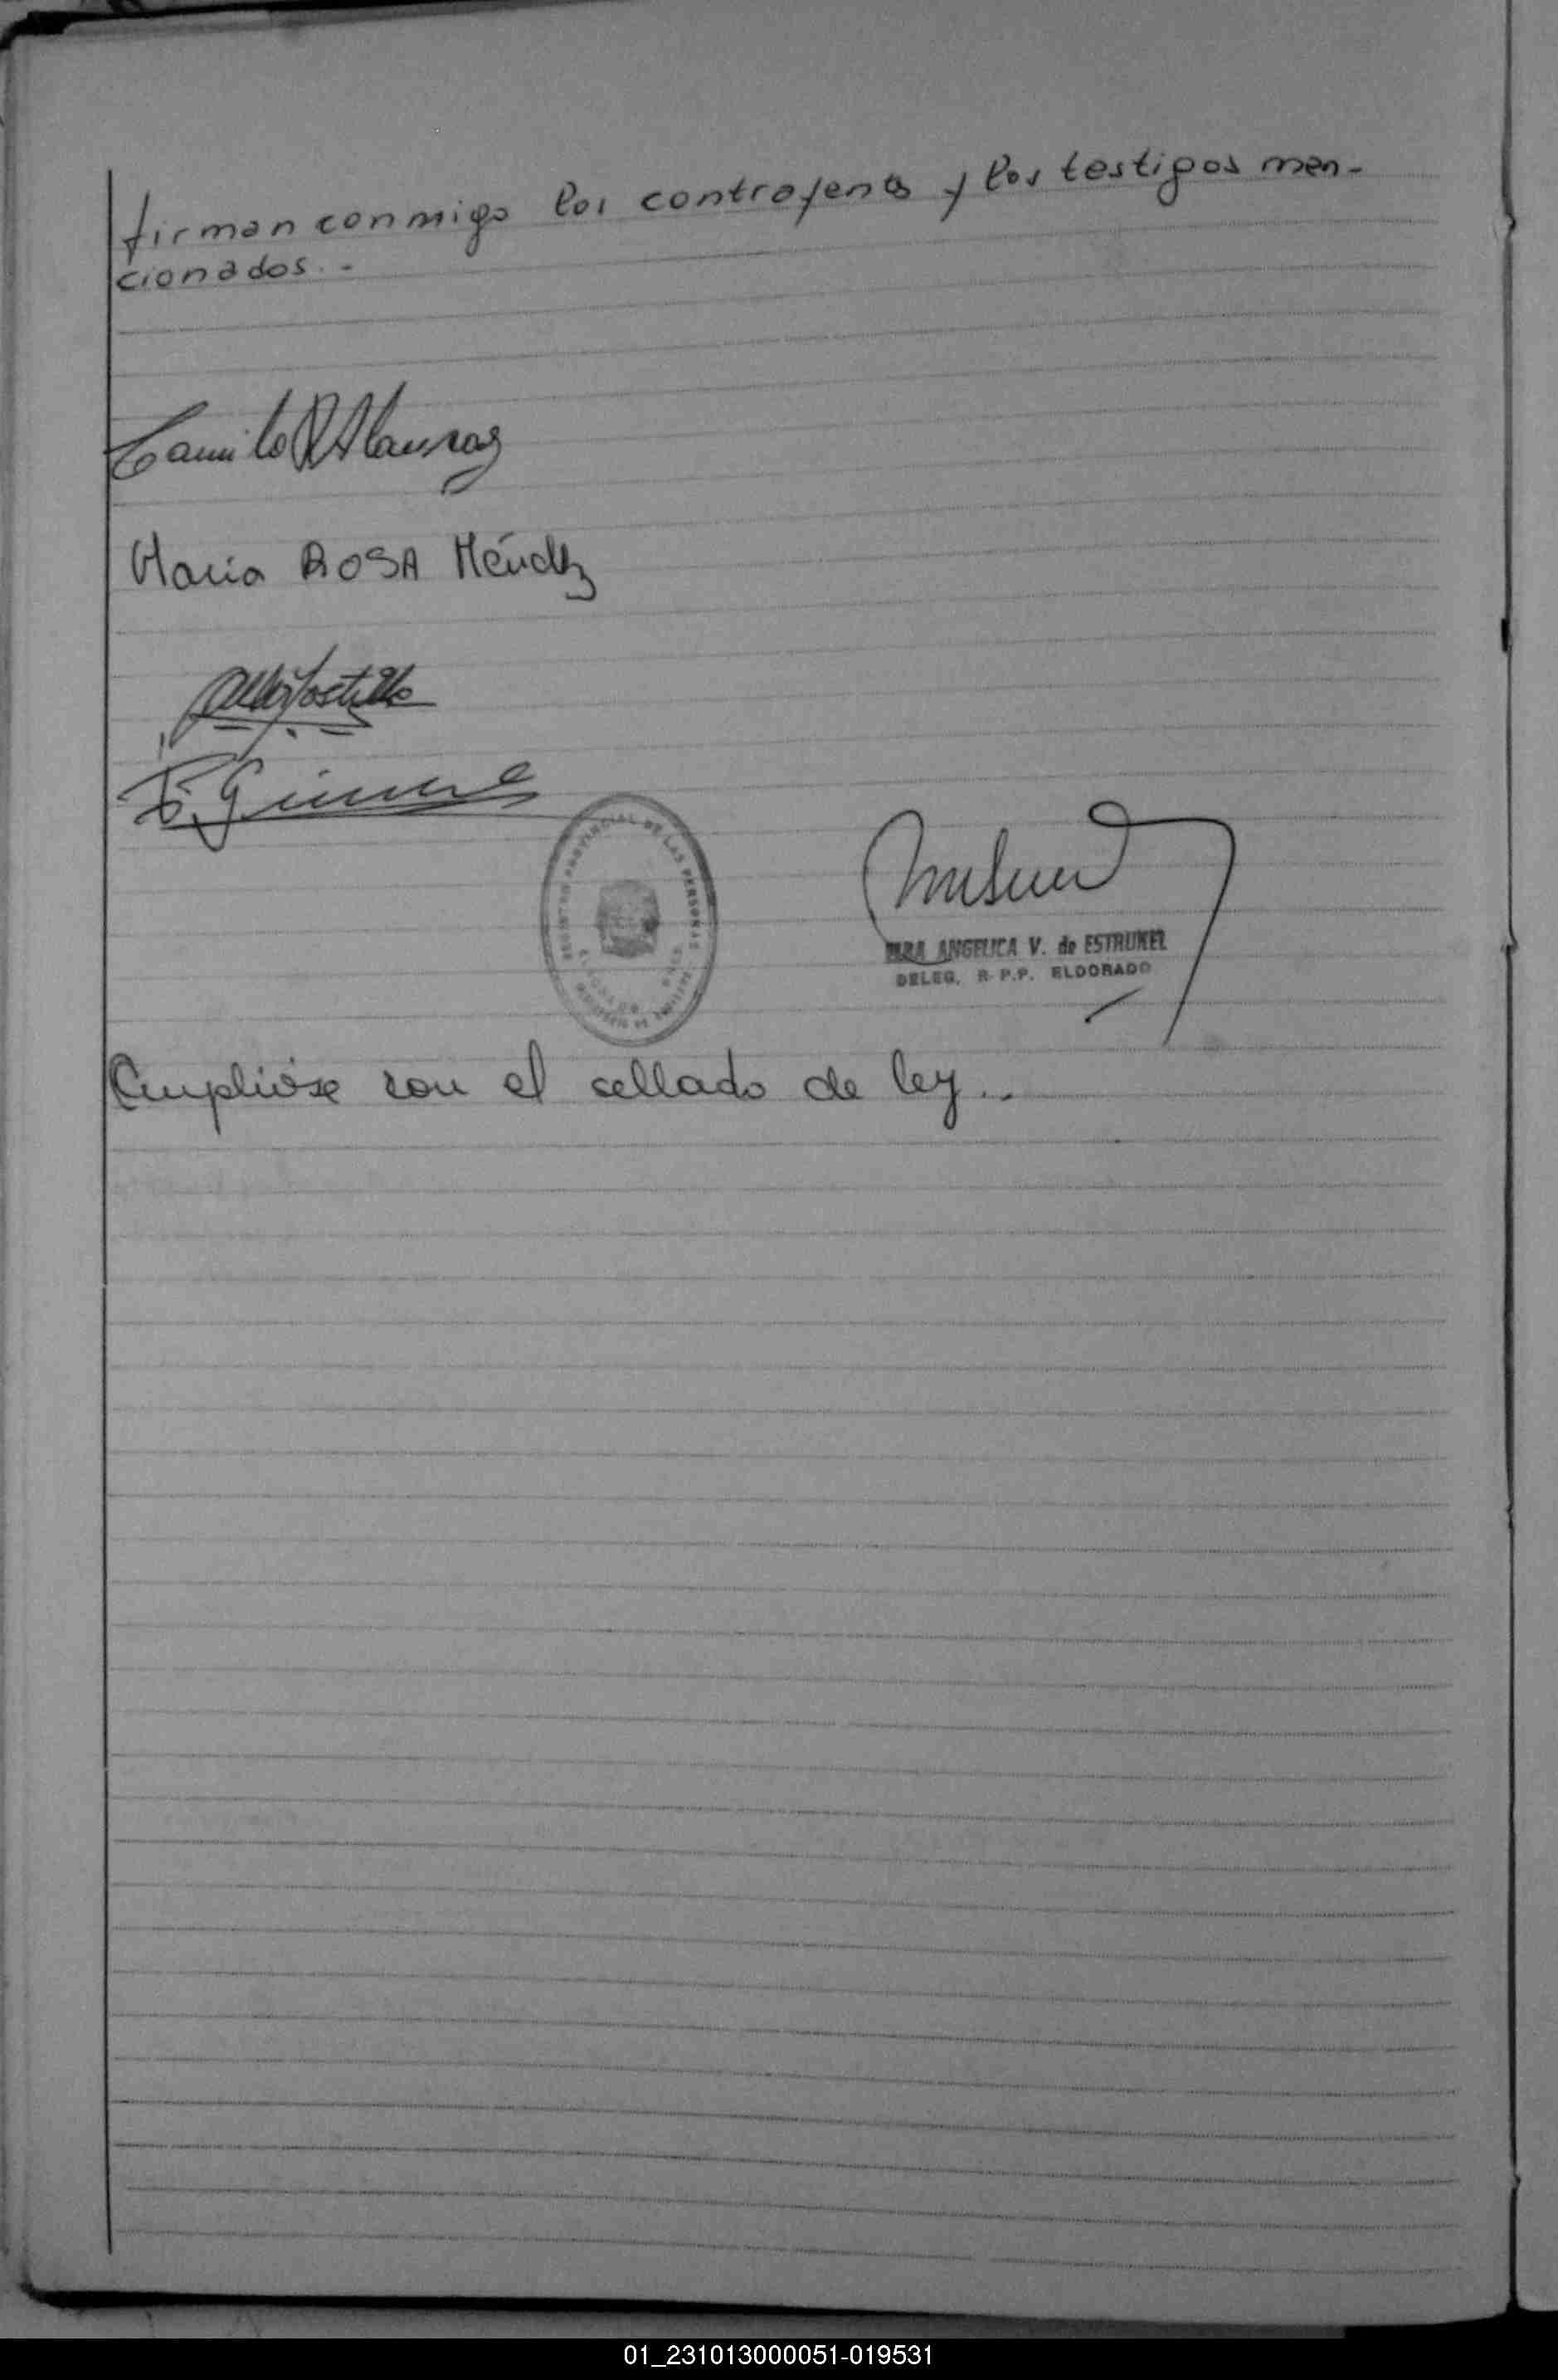 firman conmigo los contrayentes y los testigos men-
cionados.-
Camilo R Alausraz
Maria ROSA Méndez
REGISTRO PROVINCIAL DE LAS PERSONAS
ELDORADO
ANGELICA V. de ESTRUKEL
DELEG. R.P.P. ELDORADO
Cumplióse con el sellado de ley..
01_231013000051-019531